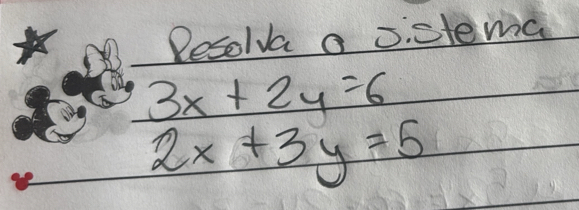 Resolva o sistema
3x + 2y = 6
2x + 3y = 5